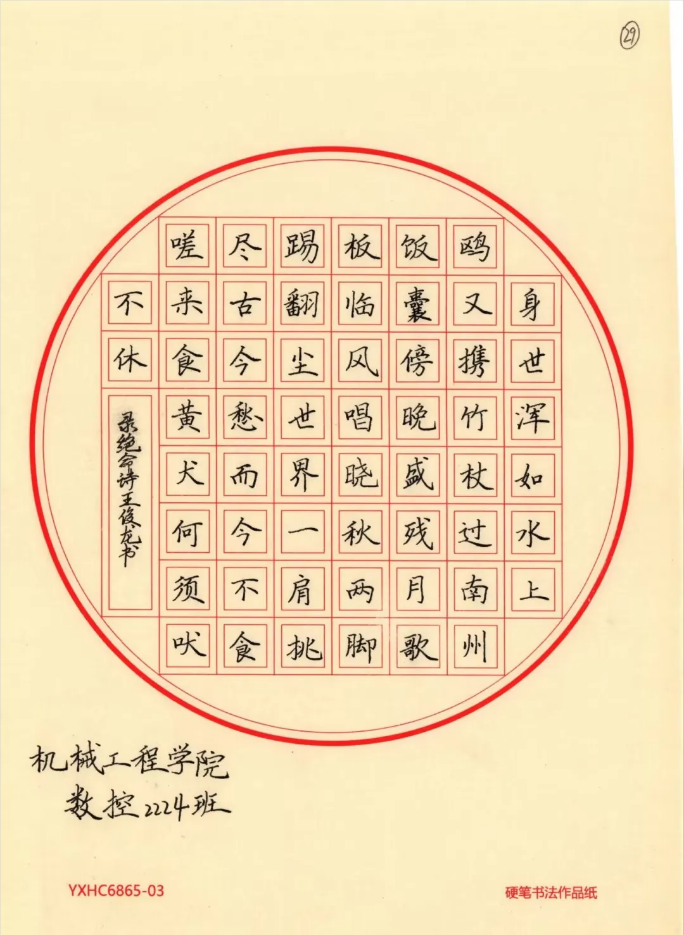 29
身世浑如水上
鸥又携竹杖过南州
饭囊傍晚盛残月歌
板临风唱晓秋两脚
踢翻尘世界一肩挑
尽古今愁而今不食
嗟来食黄犬何须吠
不休
录绝命诗王俊龙书
机械工程学院
数控2224班
YXHC6865-03
硬笔书法作品纸